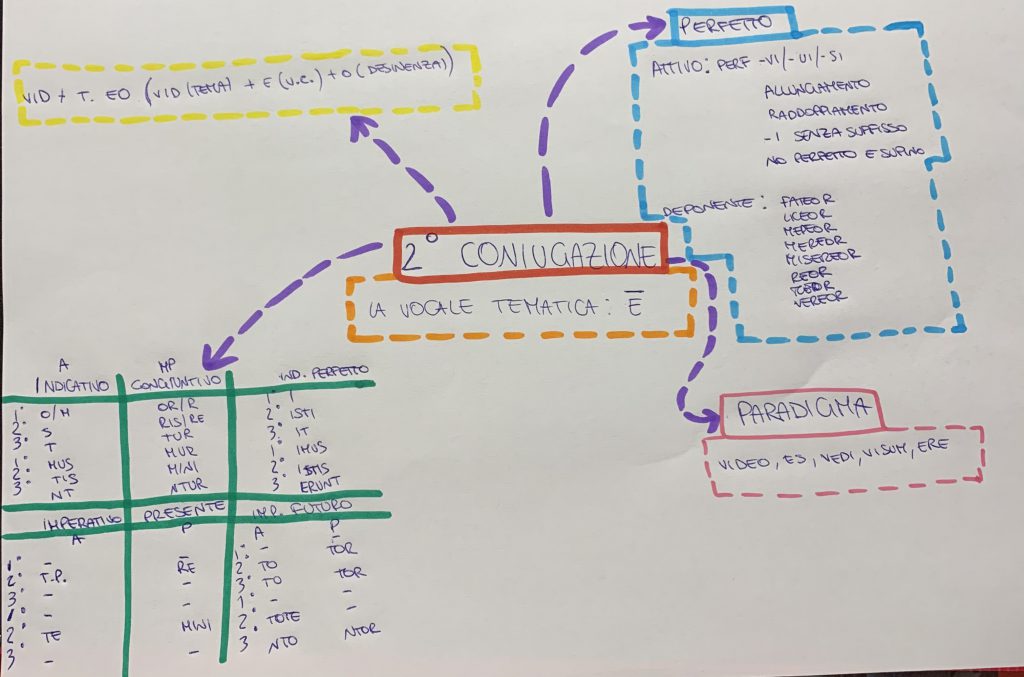 PERFETTO
ATTIVO: PERF -VI/-UI/-SI
ALLUNGAMENTO
RADDOPPIAMENTO
-I SENZA SUFFISSO
NO PERFETTO E SUPINO
DEPONENTE: FATEOR
LICEOR
MEDEOR
MEREOR
MISEREOR
REOR
VEREOR
VID + T. EO (VID (TEMA) + E (V.C.) + O (DESINENZA))
2° CONIUGAZIONE
LA VOCALE TEMATICA: Ē
PARADIGMA
VIDEO, ES, VEDI, VISUM, ERE
A MP
INDICATIVO CONGIUNTIVO IND. PERFETTO
1° O/M OR/R 1° I
2° S RIS/RE 2° ISTI
3° T TUR 3° IT
1° MUS MUR 1° IMUS
2° TIS MINI 2° ISTIS
3° NT NTUR 3° ERUNT
IMPERATIVO PRESENTE IMP. FUTURO
A P A P
1° - - 1° - -
2° T.P. RE 2° TO TOR
3° - - 3° TO TOR
1° - - 1° - -
2° TE MINI 2° TOTE -
3 - - 3 NTO NTOR